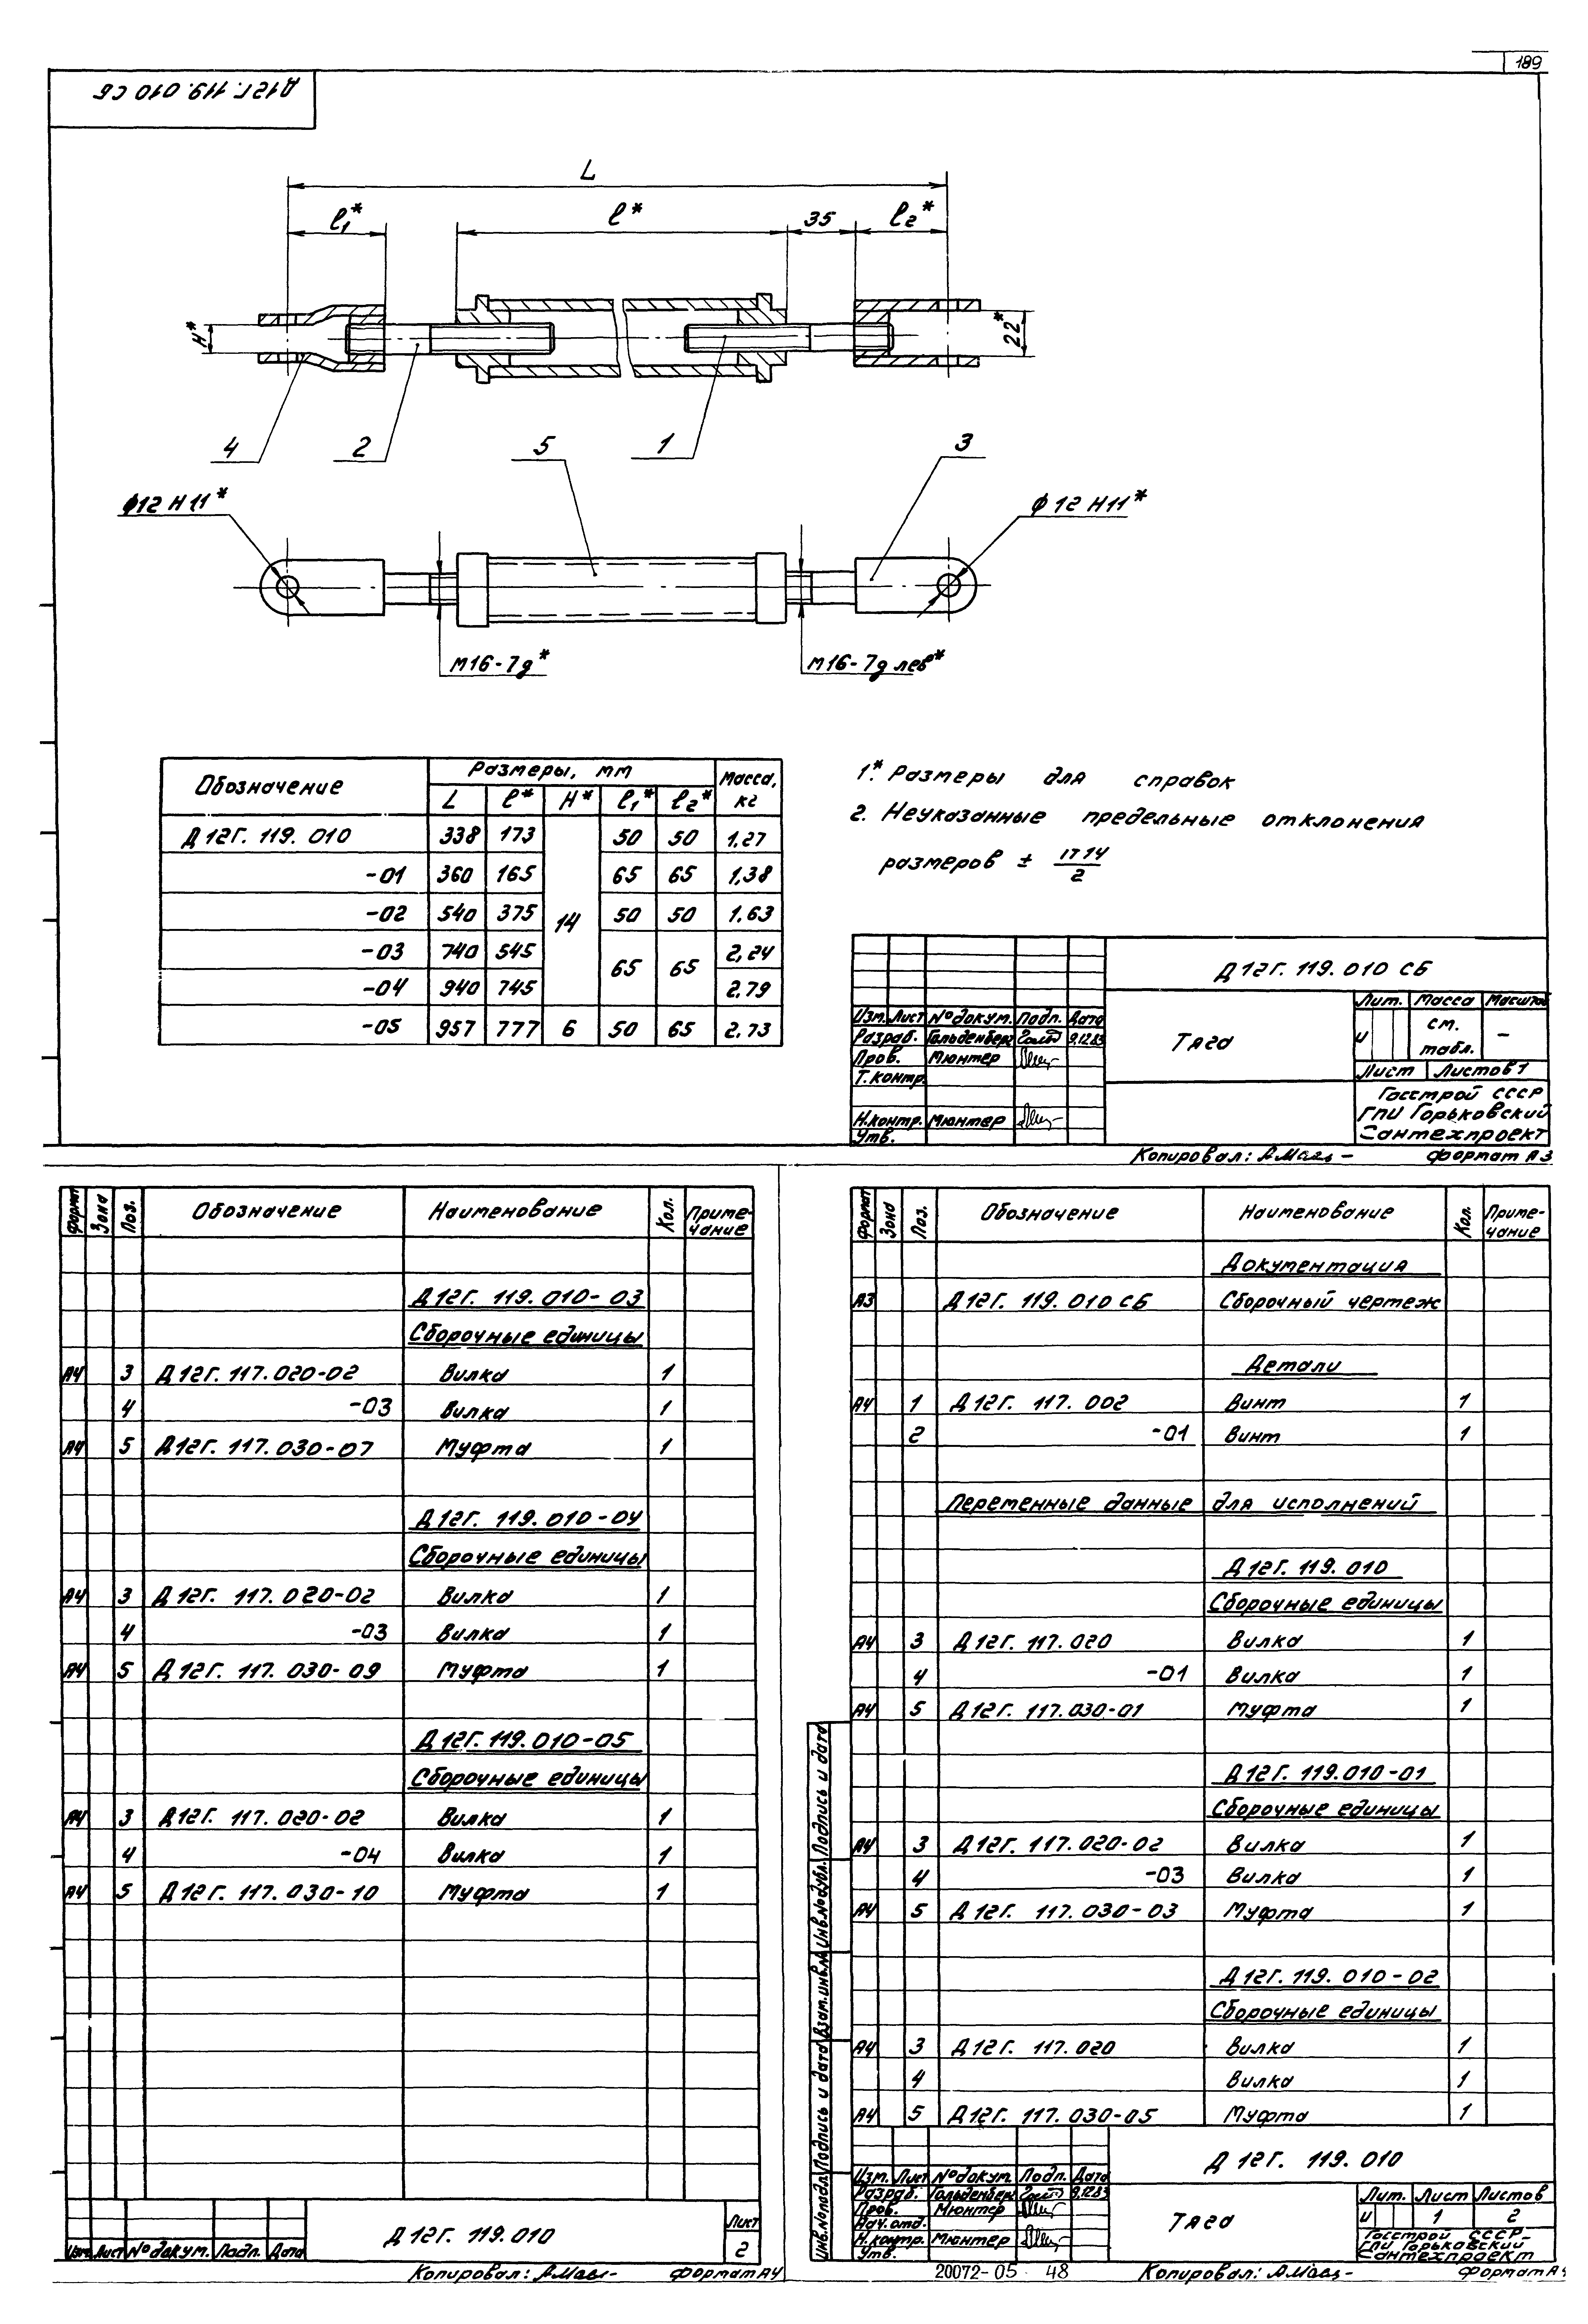 189
Д12Г. 119. 010 СБ
L
l₁* l* 35 l₂*
H* 22*
4 2 5 1 3
Ф12 Н11* Ф12 Н11*
М16-7g* М16-7g лев*
Обозначение Размеры, мм Масса, кг
L l* H* l₁* l₂*
Д12Г. 119. 010 338 173 14 50 50 1,27
-01 360 165 65 65 1,38
-02 540 375 50 50 1,63
-03 740 545 65 65 2,24
-04 940 745 2,79
-05 957 777 6 50 65 2,73
1.* Размеры для справок
2. Неуказанные предельные отклонения
размеров ± IT14/2
Д12Г. 119. 010 СБ
Изм. Лист № докум. Подп. Дата
Разраб. Гольденберг 9.12.83
Пров. Мюнтер
Т.контр.
Н.контр. Мюнтер
Утв.
Тяга
Лит. Масса Масштаб
И см. табл. –
Лист Листов 1
Госстрой СССР
ГПИ Горьковский
Сантехпроект
Копировал: Формат А3
Формат Зона Поз. Обозначение Наименование Кол. Приме-чание
Д12Г. 119. 010-03
Сборочные единицы
А4 3 Д12Г. 117. 020-02 Вилка 1
4 -03 Вилка 1
А4 5 Д12Г. 117. 030-07 Муфта 1
Д12Г. 119. 010-04
Сборочные единицы
А4 3 Д12Г. 117. 020-02 Вилка 1
4 -03 Вилка 1
А4 5 Д12Г. 117. 030-09 Муфта 1
Д12Г. 119. 010-05
Сборочные единицы
А4 3 Д12Г. 117. 020-02 Вилка 1
4 -04 Вилка 1
А4 5 Д12Г. 117. 030-10 Муфта 1
Изм. Лист № докум. Подп. Дата
Д12Г. 119. 010
Лист
2
Копировал: Формат А4
Формат Зона Поз. Обозначение Наименование Кол. Приме-чание
Документация
А3 Д12Г. 119. 010 СБ Сборочный чертеж
Детали
А4 1 Д12Г. 117. 002 Винт 1
2 -01 Винт 1
Переменные данные для исполнений
Д12Г. 119. 010
Сборочные единицы
А4 3 Д12Г. 117. 020 Вилка 1
4 -01 Вилка 1
А4 5 Д12Г. 117. 030-01 Муфта 1
Д12Г. 119. 010-01
Сборочные единицы
А4 3 Д12Г. 117. 020-02 Вилка 1
4 -03 Вилка 1
А4 5 Д12Г. 117. 030-03 Муфта 1
Д12Г. 119. 010-02
Сборочные единицы
А4 3 Д12Г. 117. 020 Вилка 1
4 Вилка 1
А4 5 Д12Г. 117. 030-05 Муфта 1
Инв.№ подл. Подпись и дата Взам.инв.№ Инв.№ дубл. Подпись и дата
Д12Г. 119. 010
Изм. Лист № докум. Подп. Дата
Разраб. Гольденберг 9.12.83
Пров. Мюнтер
Нач.отд.
Н.контр. Мюнтер
Утв.
Тяга
Лит. Лист Листов
И 1 2
Госстрой СССР
ГПИ Горьковский
Сантехпроект
20072-05 48
Копировал: Формат А4